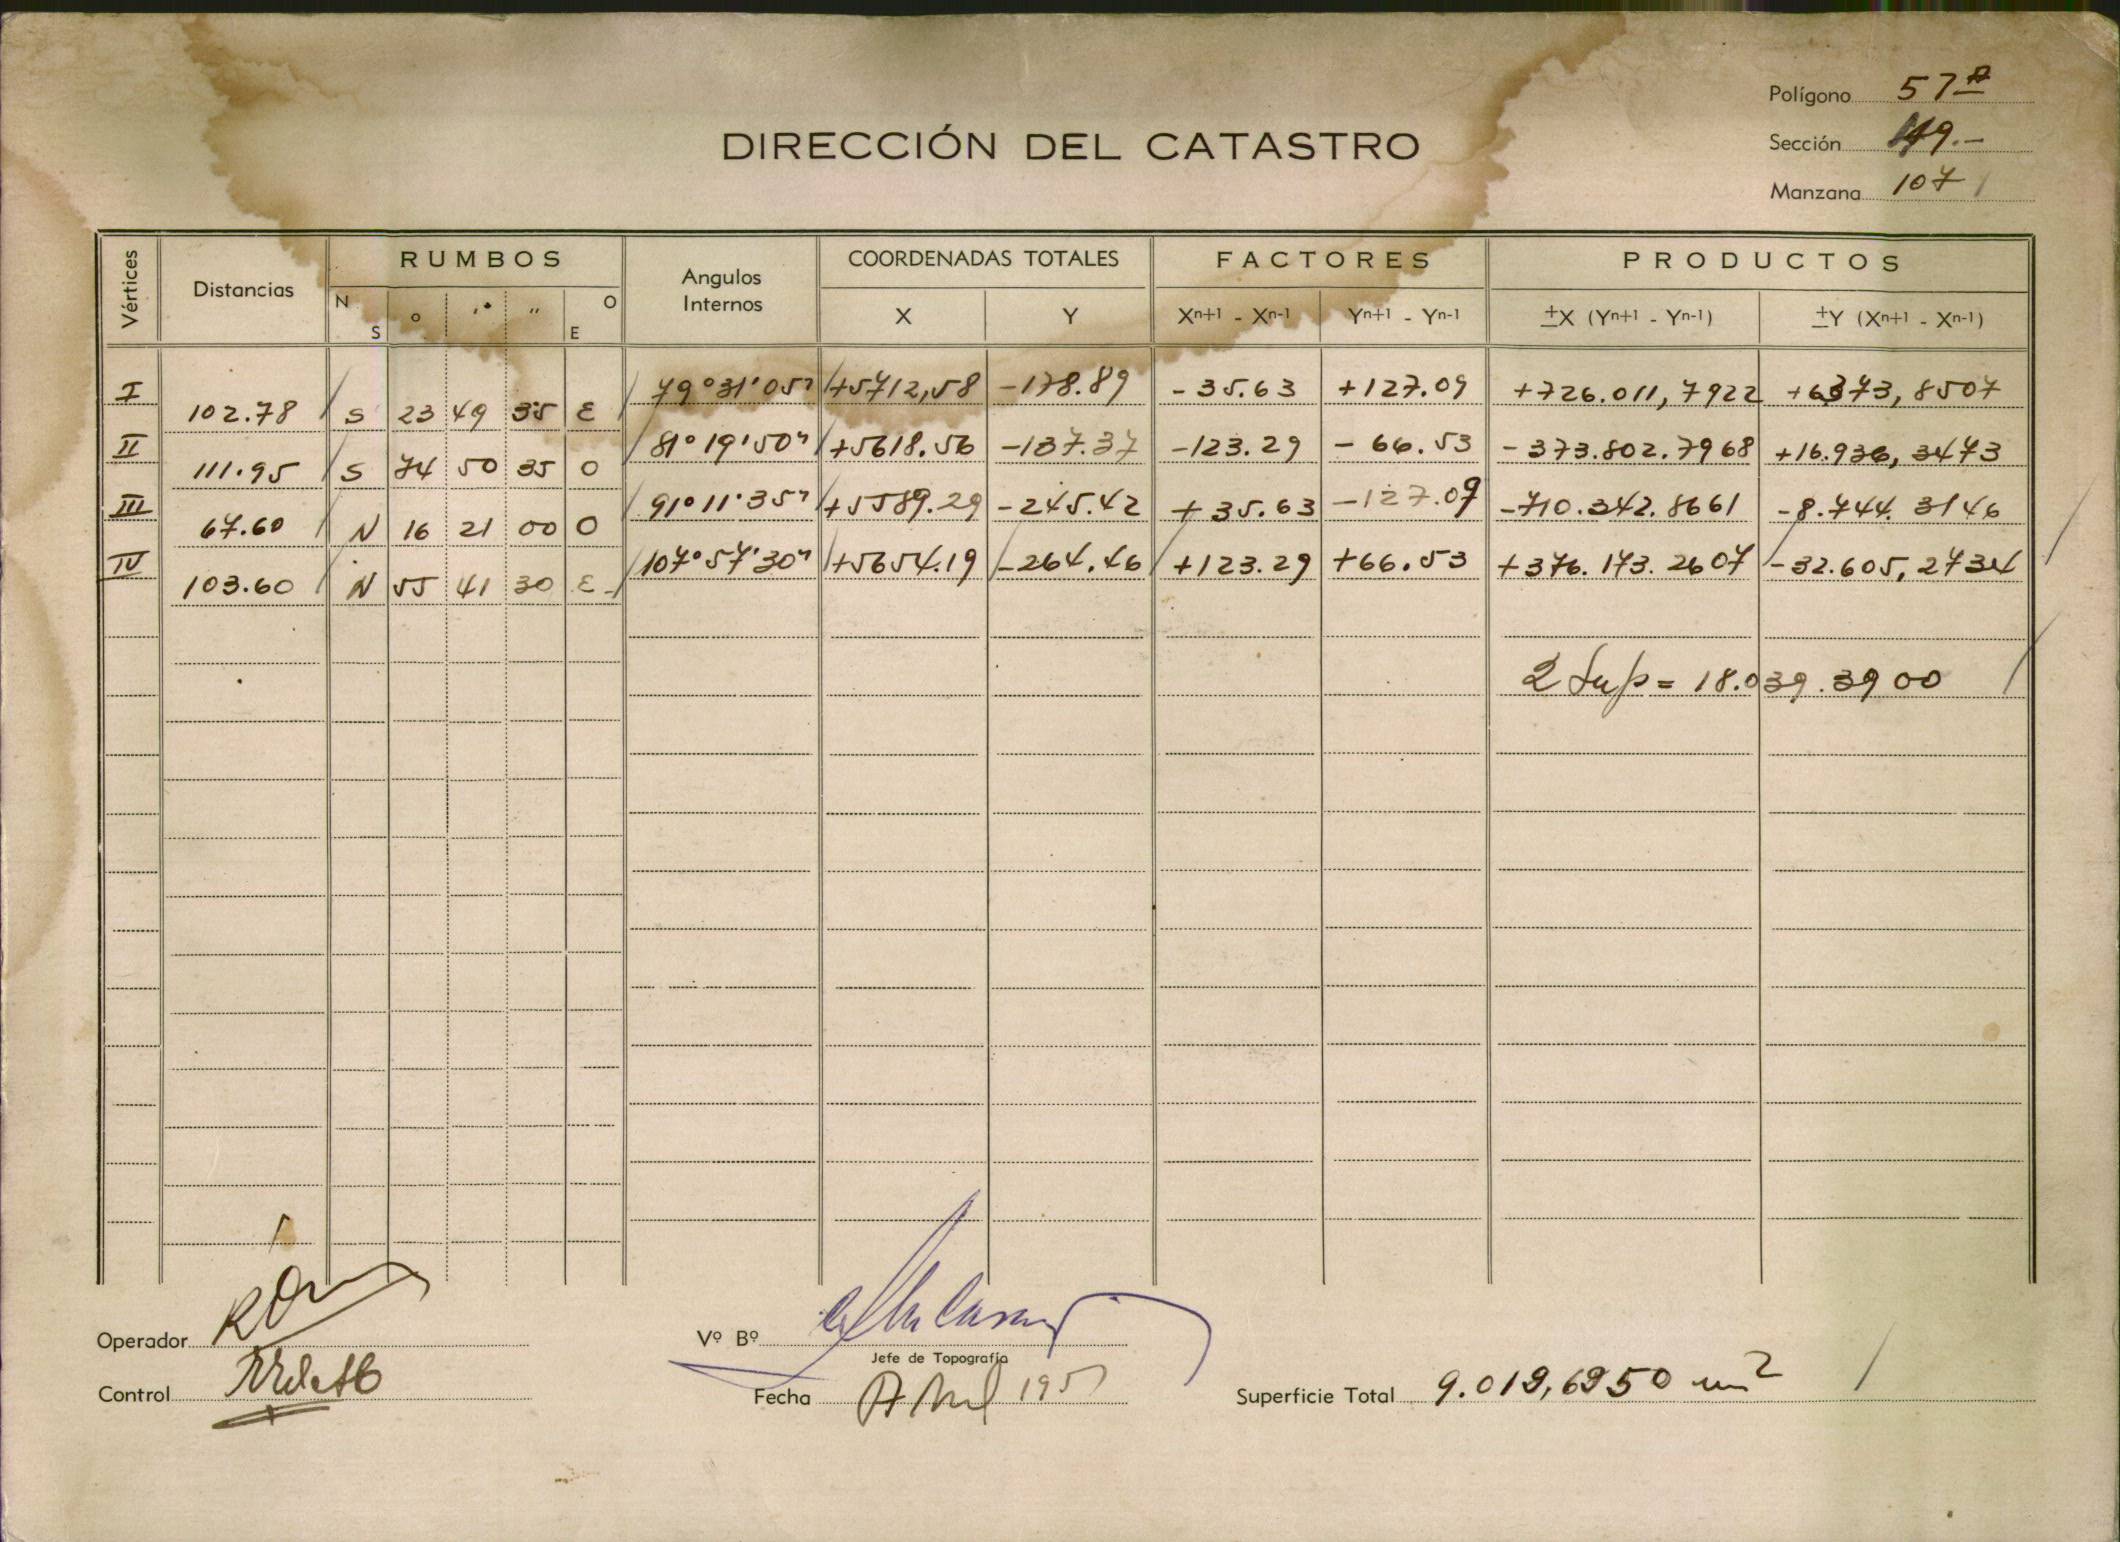 Polígono 57ª
DIRECCIÓN DEL CATASTRO
Sección 49.-
Manzana 107
Vértices Distancias RUMBOS Angulos Internos COORDENADAS TOTALES FACTORES PRODUCTOS
N S ° ' " O E X Y Xn+1 - Xn-1 Yn+1 - Yn-1 ±X (Yn+1 - Yn-1) ±Y (Xn+1 - Xn-1)
I 79°31'05" +5712,58 -178.89 -35.63 +127.09 +726.011,7922 +6373,8507
102.78 S 23 49 35 E
II 81°19'50" +5618.56 -137.37 -123.29 -66.53 -373.802.7968 +16.936,3473
111.95 S 74 50 35 O
III 91°11'35" +5589.29 -245.42 +35.63 -127.09 -710.342.8661 -8.744.3146
67.60 N 16 21 00 O
IV 107°57'30" +5654.19 -264.46 +123.29 +66.53 +376.173.2607 -32.605,2734
103.60 N 55 41 30 E
2 Sup = 18.039.3900
Operador
Vº Bº
Jefe de Topografía
Control
Fecha Abril 195
Superficie Total 9.019,6950 m2